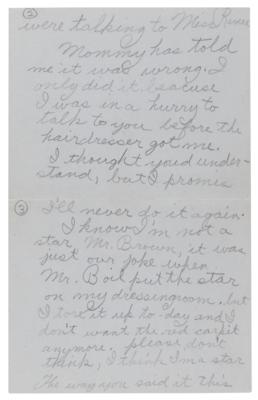 ②
were talking to Miss Renée
Mommy has told
me it was wrong. I
only did it because
I was in a hurry to
talk to you before the
hairdresser got me.
I thought you'd under-
stand, but I promis
③
I'll never do it again.
I know I'm not a
star, Mr. Brown, it was
just our joke when
Mr. Boil put the star
on my dressingroom. but
I tore it up to-day and I
don't want the red carpit
anymore. please, don't
think, I think I'm a star
The way you said it this